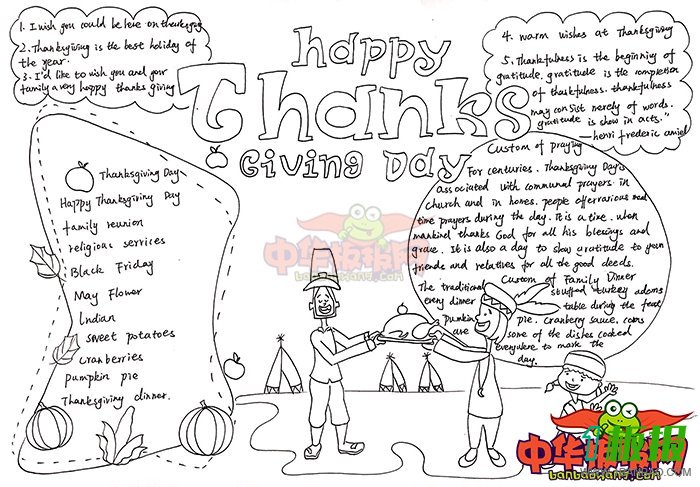 1. I wish you could be here on thanksgiving
2. Thanksgiving is the best holiday of
the year.
3. I'd like to wish you and your
family a very happy thanks giving
happy
Thanks
Giving Day
4. warm wishes at Thanksgiving
5. Thankfulness is the beginning of
gratitude. gratitude is the completion
of thankfulness. thankfulness
may consist merely of words.
gratitude is show in acts."
—henri frederic amiel
Thanksgiving Day
Happy Thanksgiving Day
family reunion
religious services
Black Friday
May Flower
Indian
sweet potatoes
cranberries
pumpkin pie
Thanksgiving dinner.
Custom of praying
For centuries. Thanksgiving Day is
associated with communal prayers in
church and in homes. people offer various meal
time prayers during the day. It is a time. when
mankind thanks God for all his blessings and
grace. It is also a day to show gratitude to
friends and relatives for all the good deeds.
Custom of Family Dinner
The traditional stuffed turkey adorns
every dinner table during the feast
pumkin pie. cranberry sauce. corns
are some of the dishes cooked
everywhere to mark the
day.
中华板报网
banbaowang.com
中华板报
banbaowang.com